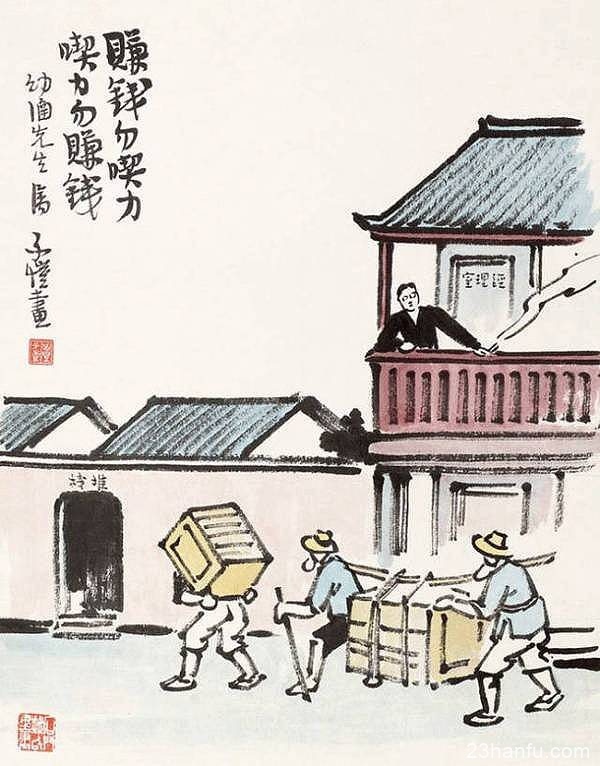 賺錢勿喫力
喫力勿賺錢
幼先生屬
子愷畫
經理室
堆棧
23hanfu.com